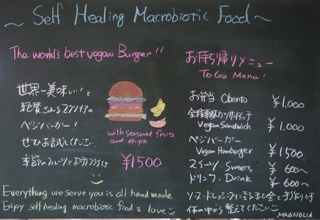 ~ Self Healing Macrobiotic Food ~
The world's best vegan Burger!!
世界一美味しい!と
絶賛されるマグノリアの
ベジバーガー!
ぜひお試しください。
季節のフルーツとポテトチップス付 ¥1500
with seasonal fruits
and chips
Everything we serve you is all hand made
Enjoy self healing macrobiotic food & love
お持ち帰りメニュー
To Go Menu!
お弁当 Obento ¥1,000
全粒粉サンドイッチ
Vegan Sandwich ¥1,000
ベジバーガー
Vegan Hamburger ¥1,500
スイーツ Sweets ¥600~
ドリンク Drink ¥600~
体の中から整えてください
MAGNOLIA